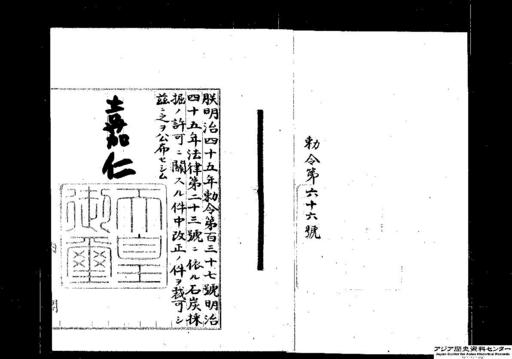 勅令第六十六號
朕明治四十五年勅令第百三十七號明治
四十五年法律第二十三號ニ依ル石炭採
掘ノ許可ニ關スル件中改正ノ件ヲ裁可シ
茲ニ之ヲ公布セシム
嘉仁
天皇
御璽
アジア歴史資料センター
Japan Center for Asian Historical Records